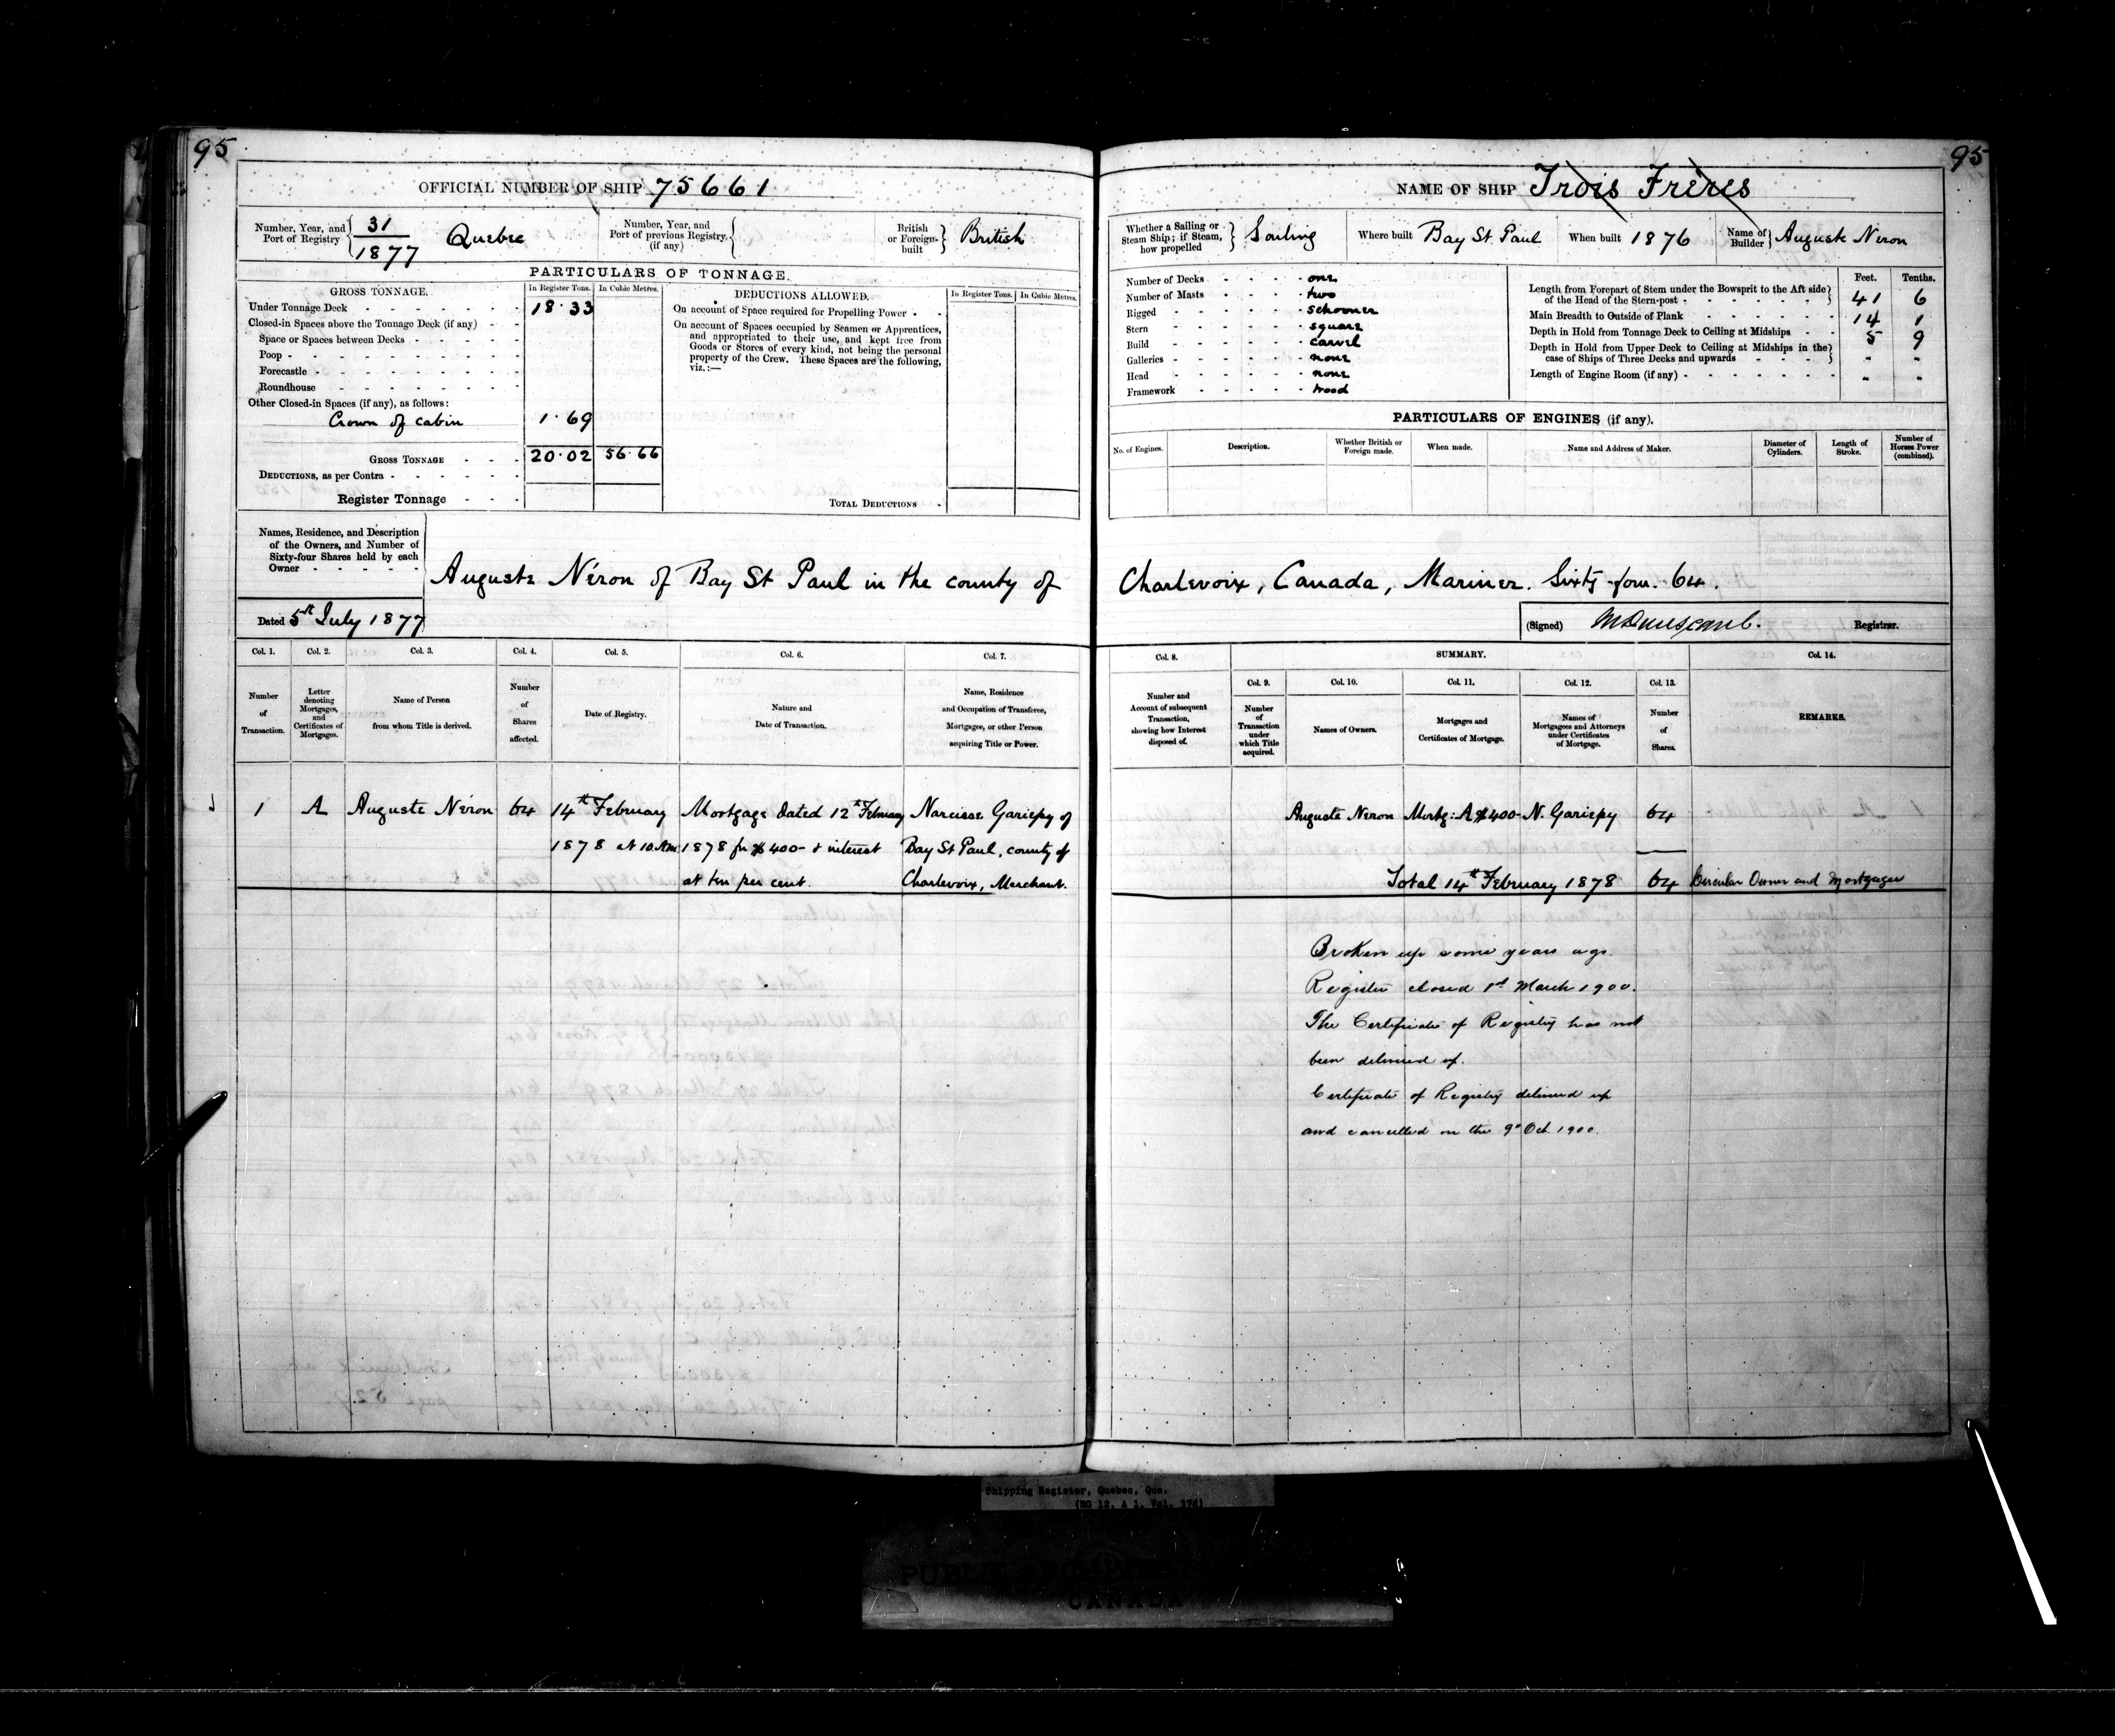 95
OFFICIAL NUMBER OF SHIP 75661
Number, Year, and Port of Registry 31/1877 Quebec
Number, Year, and Port of previous Registry, (if any)
British or Foreign-built British
PARTICULARS OF TONNAGE.
GROSS TONNAGE. In Register Tons. In Cubic Metres.
Under Tonnage Deck 18.33
Closed-in Spaces above the Tonnage Deck (if any)
Space or Spaces between Decks
Poop
Forecastle
Roundhouse
Other Closed-in Spaces (if any), as follows:
Crown of cabin 1.69
GROSS TONNAGE 20.02 56.66
DEDUCTIONS, as per Contra
Register Tonnage
DEDUCTIONS ALLOWED. In Register Tons. In Cubic Metres.
On account of Space required for Propelling Power
On account of Spaces occupied by Seamen or Apprentices,
and appropriated to their use, and kept free from
Goods or Stores of every kind, not being the personal
property of the Crew. These Spaces are the following,
viz.:—
TOTAL DEDUCTIONS
Names, Residence, and Description
of the Owners, and Number of
Sixty-four Shares held by each
Owner
Auguste Néron of Bay St Paul in the county of
Dated 5th July 1877
Col. 1. Col. 2. Col. 3. Col. 4. Col. 5. Col. 6. Col. 7.
Number of Transaction.
Letter denoting Mortgages, and Certificates of Mortgages.
Name of Person from whom Title is derived.
Number of Shares affected.
Date of Registry.
Nature and Date of Transaction.
Name, Residence and Occupation of Transferee, Mortgagee, or other Person acquiring Title or Power.
1 A Auguste Néron 64 14th February Mortgage dated 12th February Narcisse Gariepy of
1878 at 10 A.M. 1878 for $400- & interest Bay St Paul, county of
at ten per cent. Charlevoix, Merchant.
95
NAME OF SHIP Trois Frères
Whether a Sailing or Steam Ship; if Steam, how propelled Sailing
Where built Bay St Paul
When built 1876
Name of Builder Auguste Neron
Number of Decks one
Number of Masts two
Rigged schooner
Stern square
Build carvel
Galleries none
Head none
Framework wood
Feet. Tenths.
Length from Forepart of Stem under the Bowsprit to the Aft side
of the Head of the Stern-post 41 6
Main Breadth to Outside of Plank 14 1
Depth in Hold from Tonnage Deck to Ceiling at Midships 5 9
Depth in Hold from Upper Deck to Ceiling at Midships in the
case of Ships of Three Decks and upwards - -
Length of Engine Room (if any) - -
PARTICULARS OF ENGINES (if any).
No. of Engines. Description. Whether British or Foreign made. When made. Name and Address of Maker. Diameter of Cylinders. Length of Stroke. Number of Horses Power (combined).
Charlevoix, Canada, Mariner. Sixty-four. 64.
(Signed) Registrar.
Col. 8. SUMMARY. Col. 14.
Col. 9. Col. 10. Col. 11. Col. 12. Col. 13.
Number and Account of subsequent Transaction, showing how Interest disposed of.
Number of Transaction under which Title acquired.
Names of Owners.
Mortgages and Certificates of Mortgage.
Names of Mortgagees and Attorneys under Certificates of Mortgage.
Number of Shares.
REMARKS.
Auguste Neron Mortg: A $400- N. Gariepy 64
Total 14th February 1878 64 Circular Owner and Mortgagee
Broken up some years ago.
Register closed 1st March 1900.
The Certificate of Registry has not
been delivered up.
Certificate of Registry delivered up
and cancelled on the 9th Oct. 1900.
Shipping Register, Quebec, Que.
(RG 12, A 1, Vol. 176)
PUBLIC ARCHIVES
CANADA